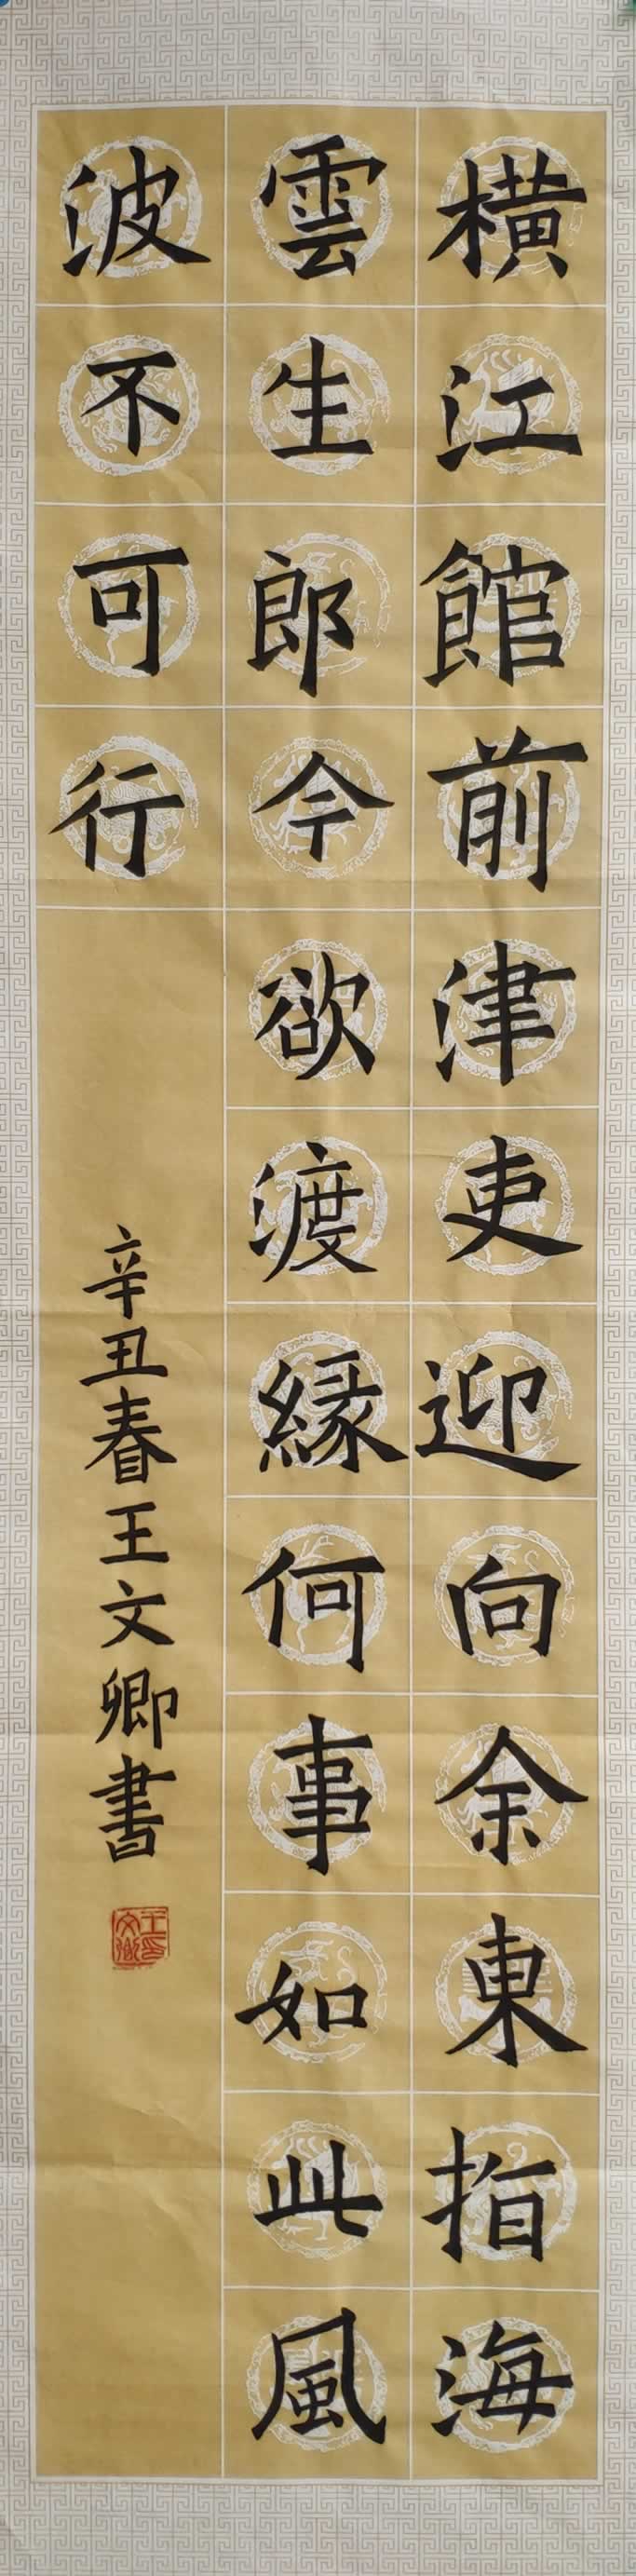 横江館前津吏迎向余東指海
雲生郎今欲渡縁何事如此風
波不可行
辛丑春王文卿書
王文卿印